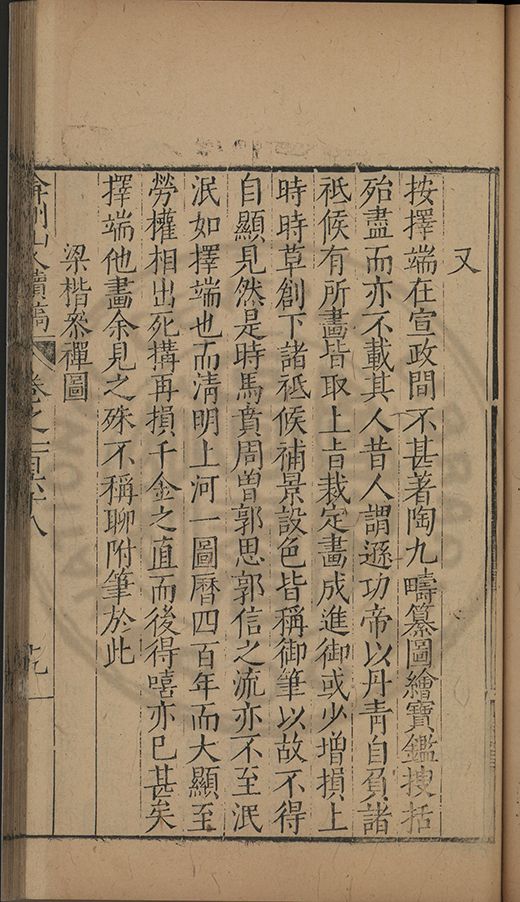 又
按擇端在宣政間不甚著陶九疇纂圖繪寶鑑搜括
殆盡而亦不載其人昔人謂遜功帝以丹青自負諸
祗候有所畫皆取上旨裁定畫成進御或少增損上
時時草創下諸祗候補景設色皆稱御筆以故不得
自顯見然是時馬賁周曾郭思郭信之流亦不至泯
泯如擇端也而淸明上河一圖曆四百年而大顯至
勞權相出死搆再損千金之直而後得嘻亦已甚矣
擇端他畫余見之殊不稱聊附筆於此
梁楷叅禪圖
弇州山人續稿 卷之一百六十八 十九